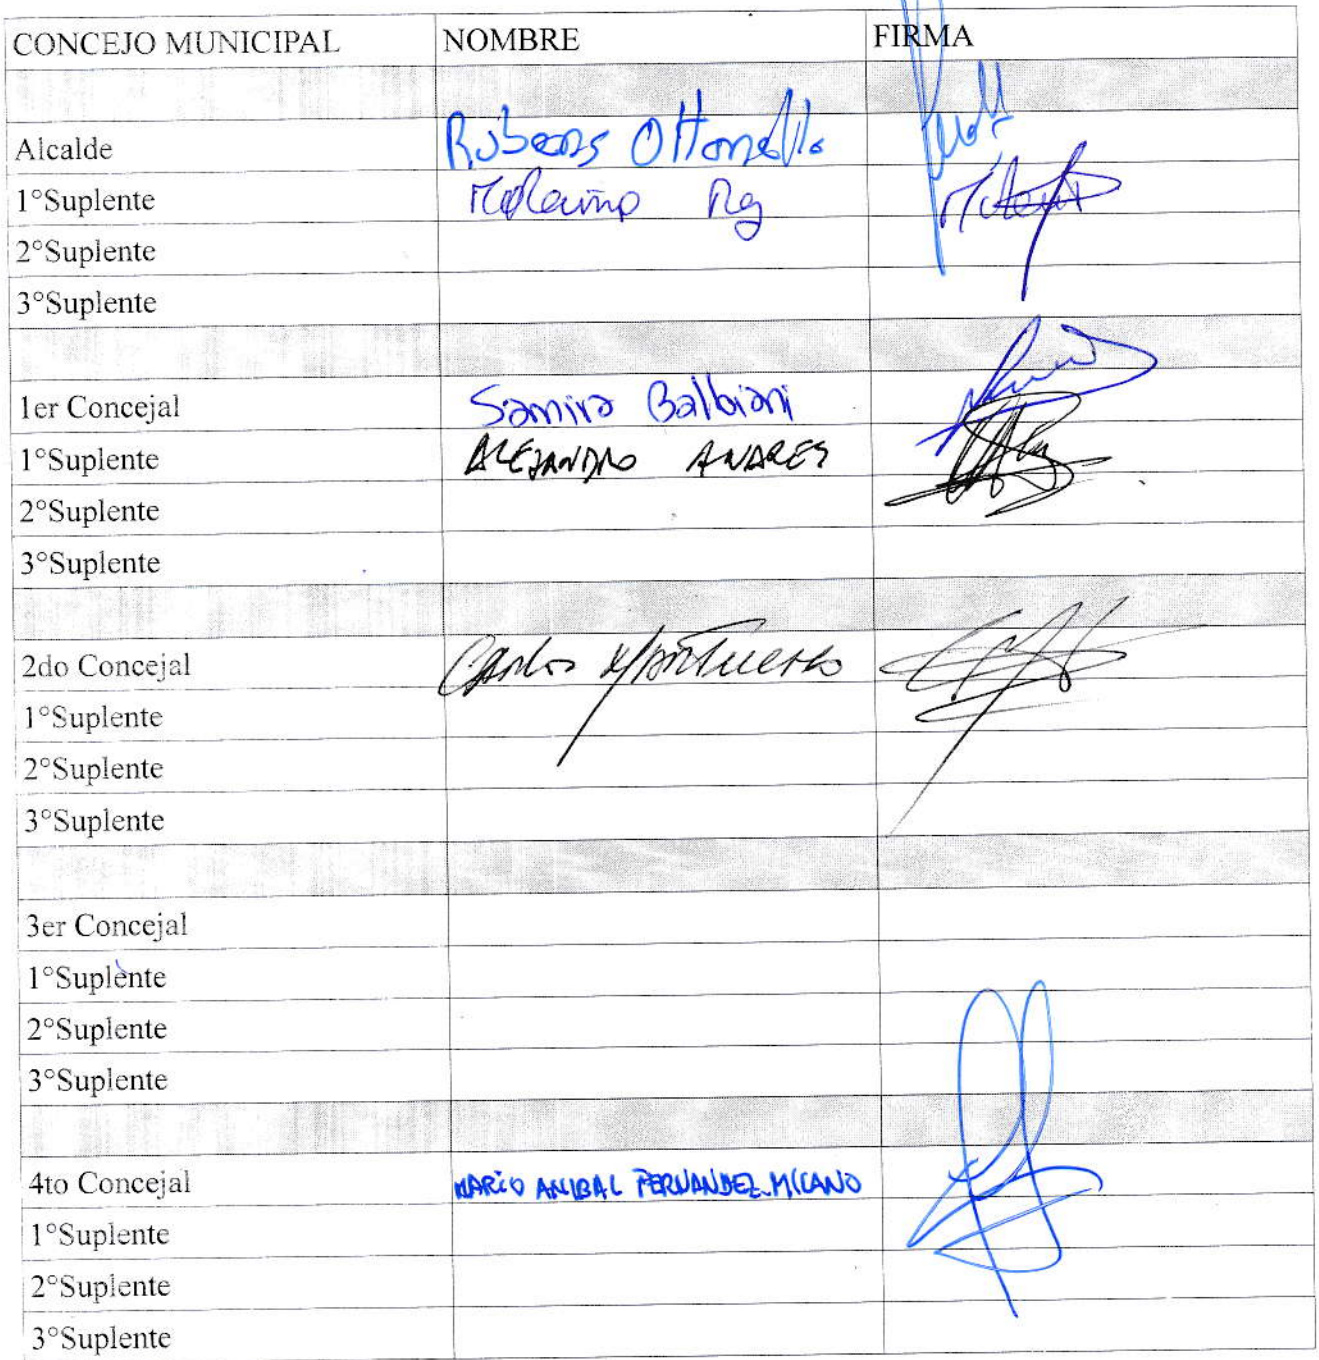 CONCEJO MUNICIPAL NOMBRE FIRMA
Alcalde Rubens Ottonello
1°Suplente
2°Suplente
3°Suplente
1er Concejal Samira Balbiani
1°Suplente ALEJANDRO ANARES
2°Suplente
3°Suplente
2do Concejal Carlos
1°Suplente
2°Suplente
3°Suplente
3er Concejal
1°Suplente
2°Suplente
3°Suplente
4to Concejal MARIO ANIBAL FERNANDEZ
1°Suplente
2°Suplente
3°Suplente